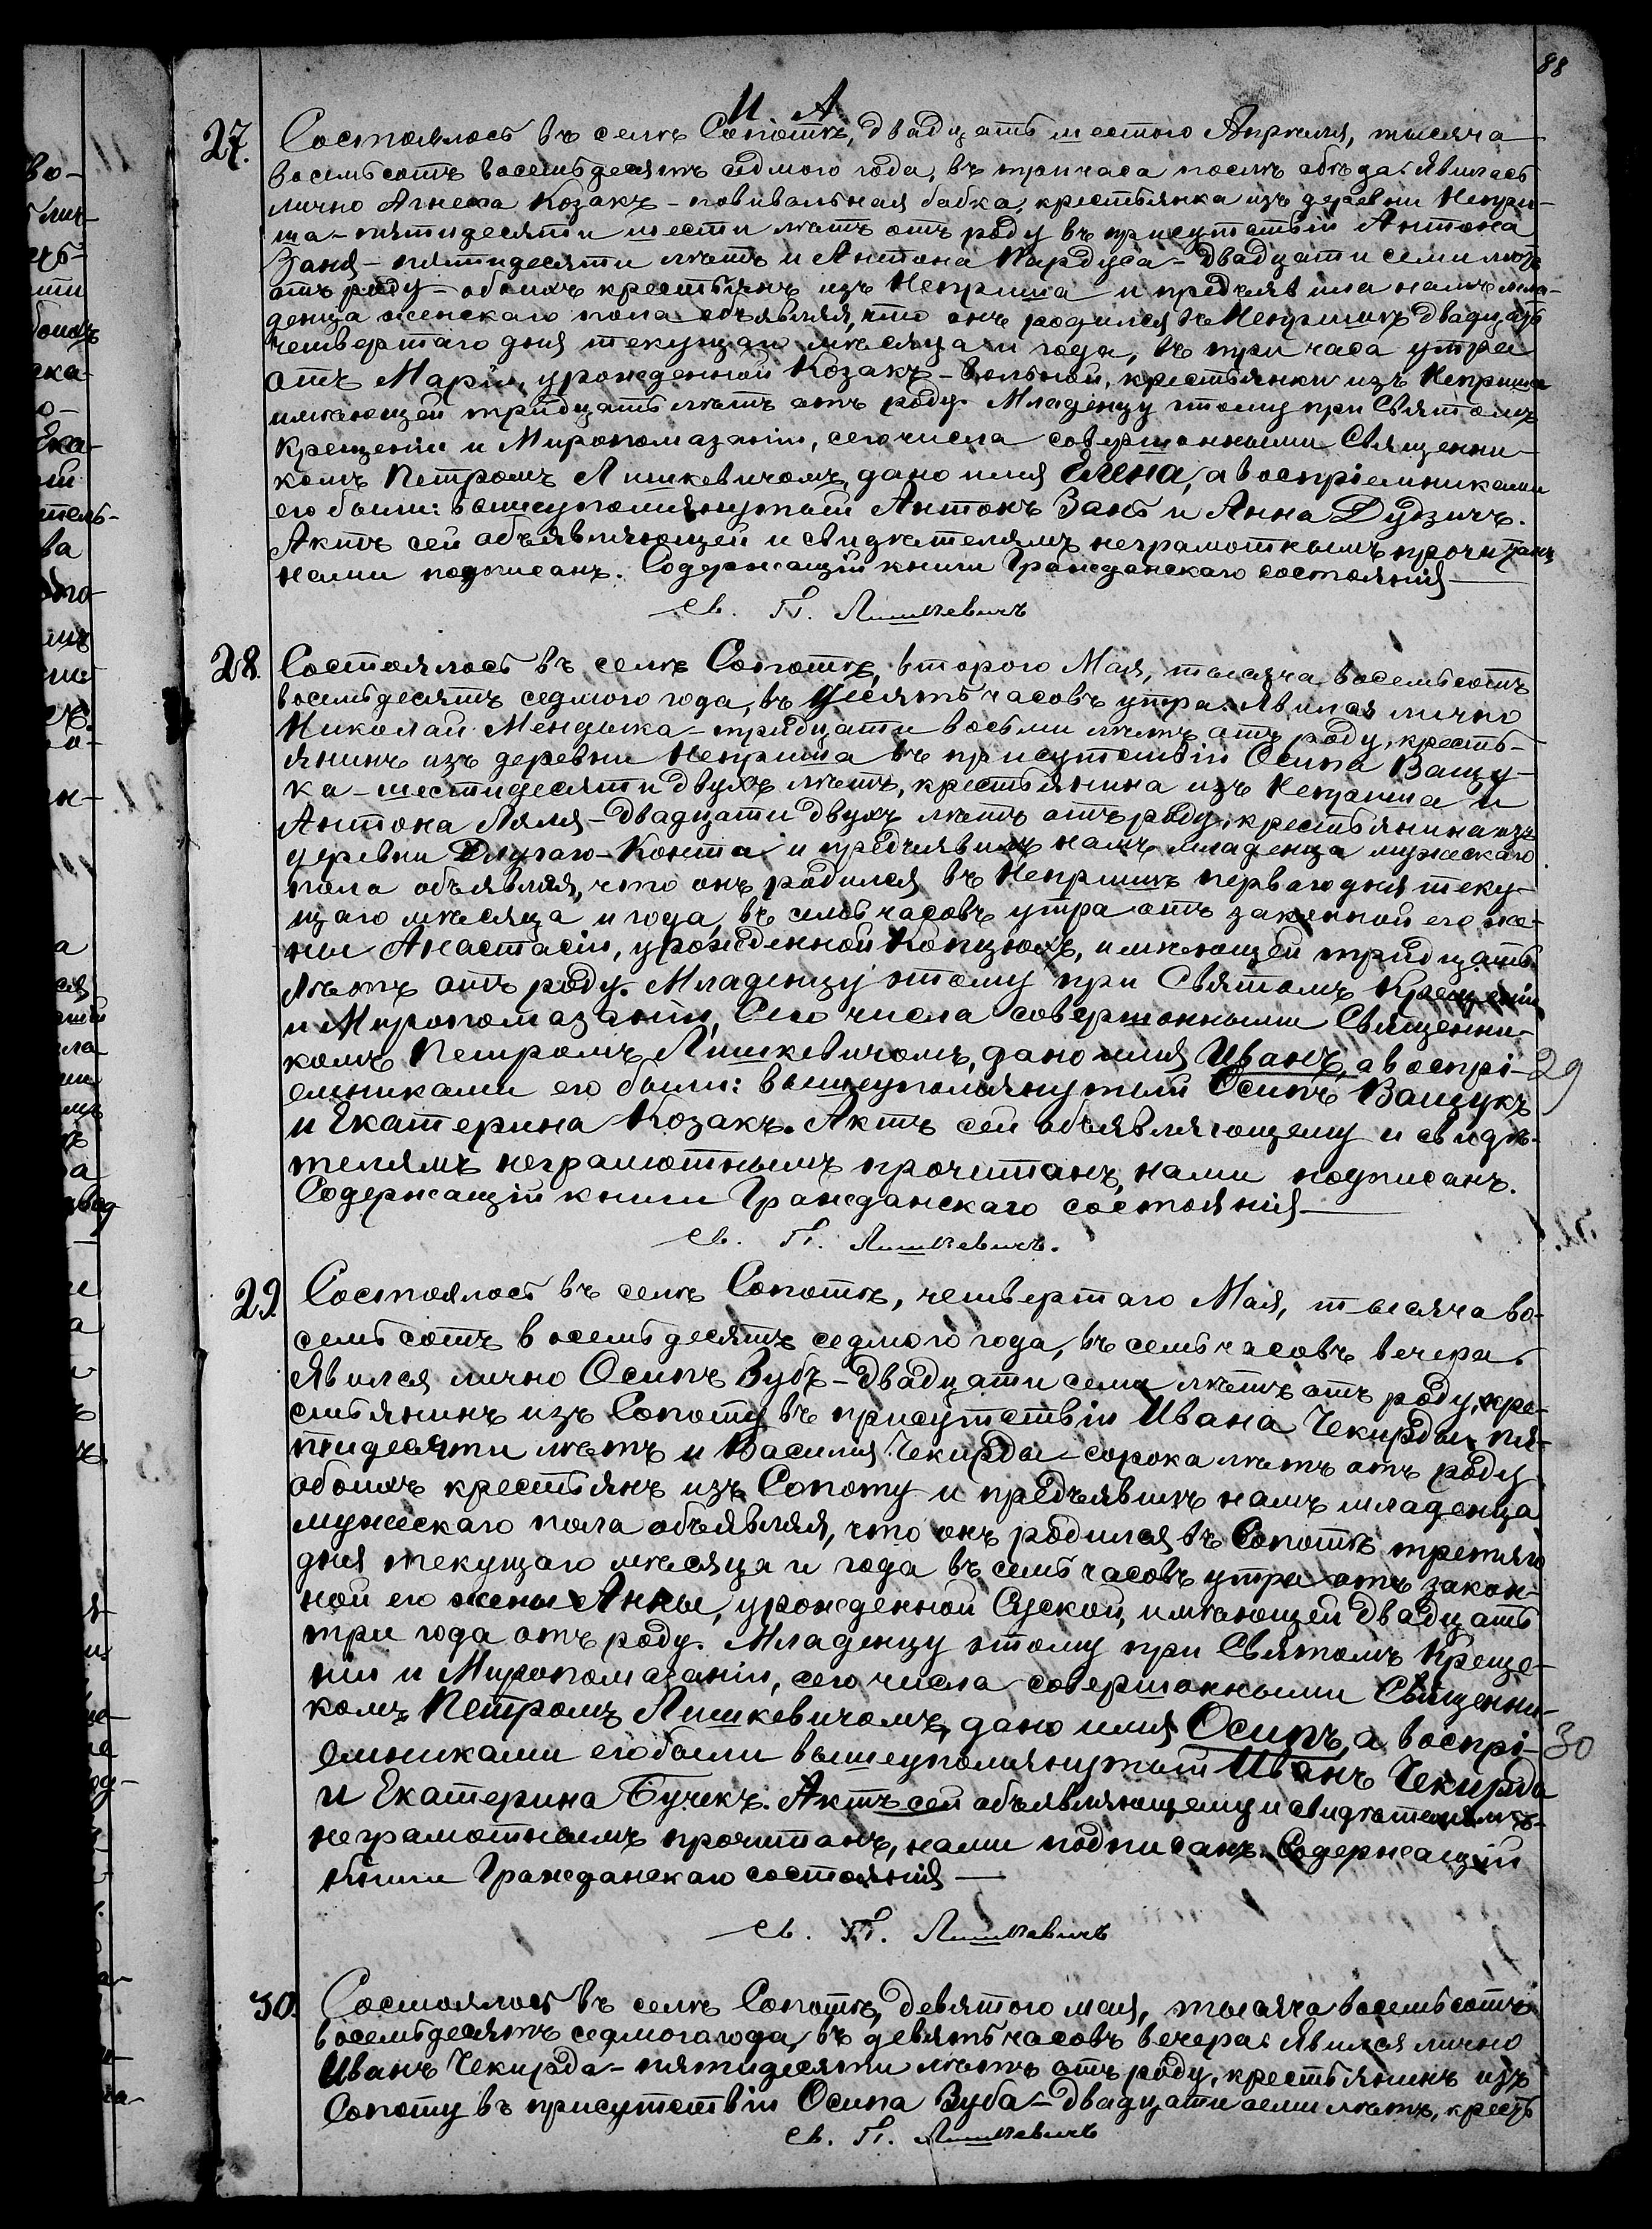 88
И А
27. Состоялось въ селѣ Сопотѣ, двадцать шестого Апрѣля, тысяча
восемьсотъ восемьдесятъ седмого года, въ три часа послѣ обѣда. Явилась
лично Агнеса Козакъ - повивальная бабка, крестьянка изъ деревни Непри-
ша - пятидесяти шести лѣтъ отъ роду въ присутствіи Антона
Заня - пятидесяти лѣтъ и Антона Пардуса - двадцати семи лѣтъ
отъ роду - обоихъ крестьянъ изъ Неприша и предъявила намъ мла-
денца женскаго пола объявляя, что онъ родился въ Непришѣ двадцать
четвертаго дня текущаго мѣсяца и года, въ три часа утра
отъ Маріи, урожденной Козакъ - вольной, крестьянки изъ Неприша
имѣющей тридцать лѣтъ отъ роду. Младенцу этому при Святомъ
Крещеніи и Миропомазаніи, сего числа совершонными Священни-
комъ Петромъ Лишкевичомъ, дано имя Елена, а воспріемниками
его были: вышеупомянутый Антонъ Зань и Анна Дудзичъ.
Актъ сей объявляющей и свидѣтелямъ неграмотнымъ прочитанъ,
нами подписанъ. Содержащій книги Гражданскаго состоянія
Св. П. Лишкевичъ
28. Состоялось въ селѣ Сопотѣ, второго Мая, тысяча восемьсотъ
восемьдесятъ седмого года, въ десять часовъ утра. Явился лично
Николай Мендыка - тридцати восьми лѣтъ отъ роду, кресть-
янинъ изъ деревни Неприша въ присутствіи Осипа Ващу-
ка - шестидесяти двухъ лѣтъ, крестьянина изъ Неприша и
Антона Ляля - двадцати двухъ лѣтъ отъ роду, крестьянина изъ
деревни Длугаго-Конта и предъявилъ намъ младенца мужескаго
пола объявляя, что онъ родился въ Непришѣ перваго дня теку-
щаго мѣсяца и года, въ семь часовъ утра отъ законной его же-
ны Анастасіи, урожденной Копцюхъ, имѣющей тридцать
лѣтъ отъ роду. Младенцу этому при Святомъ Крещеніи
и Миропомазаніи, сего числа совершонными Священни-
комъ Петромъ Лишкевичомъ, дано имя Иванъ, а воспрі-
29
емниками его были: вышеупомянутый Осипъ Ващукъ
и Екатерина Козакъ. Актъ сей объявляющему и свидѣ-
телямъ неграмотнымъ прочитанъ, нами подписанъ.
Содержащій книги Гражданскаго состоянія
Св. П. Лишкевичъ.
29. Состоялось въ селѣ Сопотѣ, четвертаго Мая, тысяча во-
семьсотъ восемьдесятъ седмого года, въ семь часовъ вечера.
Явился лично Осипъ Зубъ - двадцати семи лѣтъ отъ роду, кре-
стьянинъ изъ Сопоту въ присутствіи Ивана Чекирды пя-
тидесяти лѣтъ и Василія Чекирда - сорока лѣтъ отъ роду
обоихъ крестьянъ изъ Сопоту и предъявилъ намъ младенца
мужескаго пола объявляя, что онъ родился въ Сопотѣ третяго
дня текущаго мѣсяца и года въ семь часовъ утра отъ закон-
ной его жены Анны, урожденной Суской, имѣющей двадцать
три года отъ роду. Младенцу этому при Святомъ Креще-
ніи и Миропомазаніи, сего числа совершонными Священни-
комъ Петромъ Лишкевичомъ, дано имя Осипъ, а воспрі-
30
емниками его были вышеупомянутый Иванъ Чекирда
и Екатерина Бучекъ. Актъ сей объявляющему и свидѣтелямъ
неграмотнымъ прочитанъ, нами подписанъ. Содержащій
книги Гражданскаго состоянія
Св. П. Лишкевичъ
30. Состоялось въ селѣ Сопотѣ, девятого мая, тысяча восемьсотъ
восемьдесятъ седмого года, въ девять часовъ вечера. Явился лично
Иванъ Чекирда - пятидесяти лѣтъ отъ роду, крестьянинъ изъ
Сопоту въ присутствіи Осипа Зуба - двадцати семи лѣтъ, кресть
Св. П. Лишкевичъ